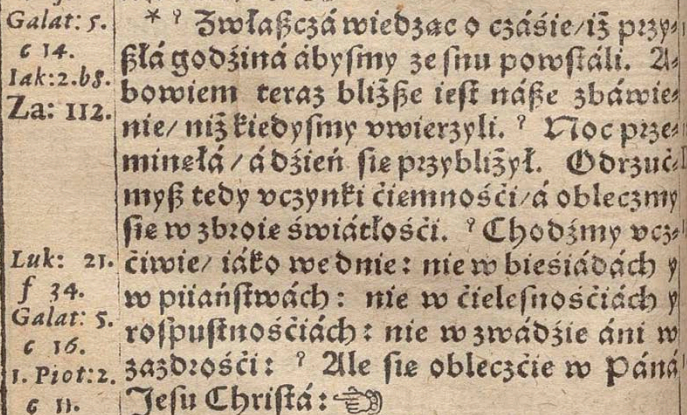 Galat: 5.
c 14.
Iak: 2. b 8.
Za: 112.
* ⁊ Zwłaßczá wiedząc o czáśie/ iż przy⸗
ßłá godźiná ábysmy ze snu powstáli. A⸗
bowiem teraz bliżße iest náße zbáwie⸗
nie/ niż kiedysmy vwierzyli. ⁊ Noc prze⸗
minęłá/ á dźień się przybliżył. Odrzuć⸗
myß tedy vczynki ćiemnośći/ á obleczmy
się w zbroie świátłośći. ⁊ Chodźmy vcz⸗
ćiwie/ iáko we dnie: nie w bieśiádách y
w piiáństwách: nie w ćielesnośćiách y
rospustnośćiách: nie w zwádźie áni w
zazdrośći: ⁊ Ale się obleczćie w Páná
Jesu Christá: ☜
Luk: 21.
f 34.
Galat: 5.
c 16.
1. Piot: 2.
c 11.